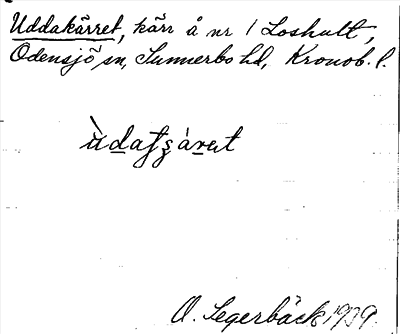 Uddakärret, kärr å nr 1 Loshult,
Odensjö sn, Sunnerbo hd, Kronob. l.
O. Segerbäck 1939.